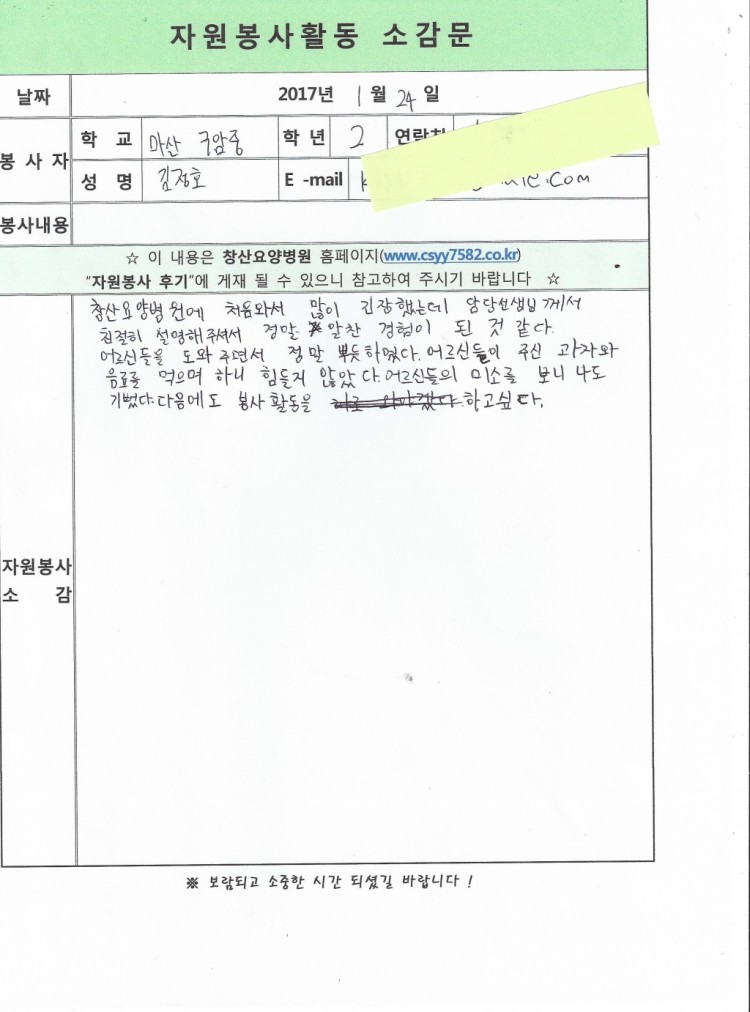 자원봉사활동 소감문
날짜 2017년 1월 24일
봉사자 학교 마산 구암중 학년 2 연락처
성명 김정호 E -mail .com
봉사내용
☆ 이 내용은 창산요양병원 홈페이지(www.csyy7582.co.kr)
"자원봉사 후기"에 게재 될 수 있으니 참고하여 주시기 바랍니다 ☆
창산요양병원에 처음와서 많이 긴장했는데 담당선생님께서
친절히 설명해주셔서 정말 알찬 경험이 된 것 같다.
어르신들을 도와주면서 정말 뿌듯하였다. 어르신들이 주신 과자와
음료를 먹으며 하니 힘들지 않았다. 어르신들의 미소를 보니 나도
기뻤다. 다음에도 봉사활동을 하고싶다.
자원봉사
소감
※ 보람되고 소중한 시간 되셨길 바랍니다 !